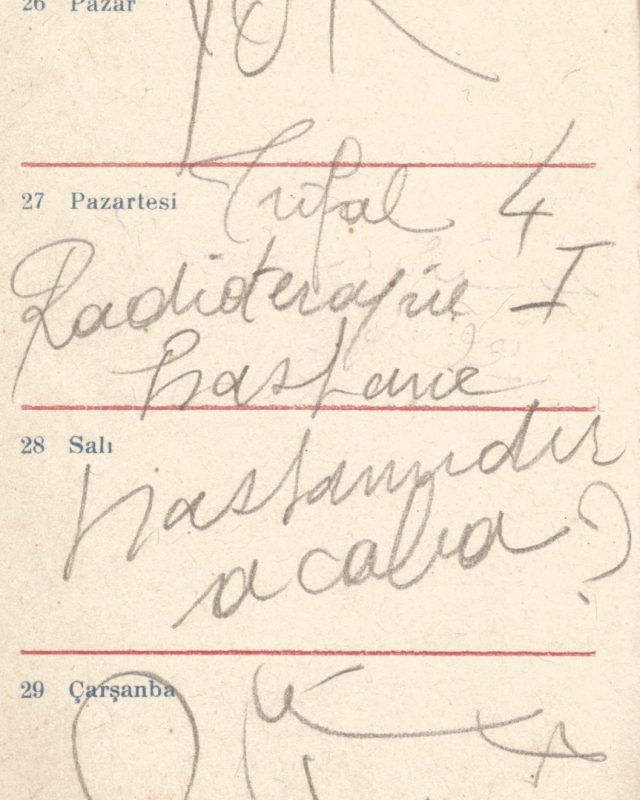 26 Pazar
YOK
27 Pazartesi
Tufal 4
Radioterapie I
hastane
28 Salı
hastamıdır
acaba ?
29 Çarşanba